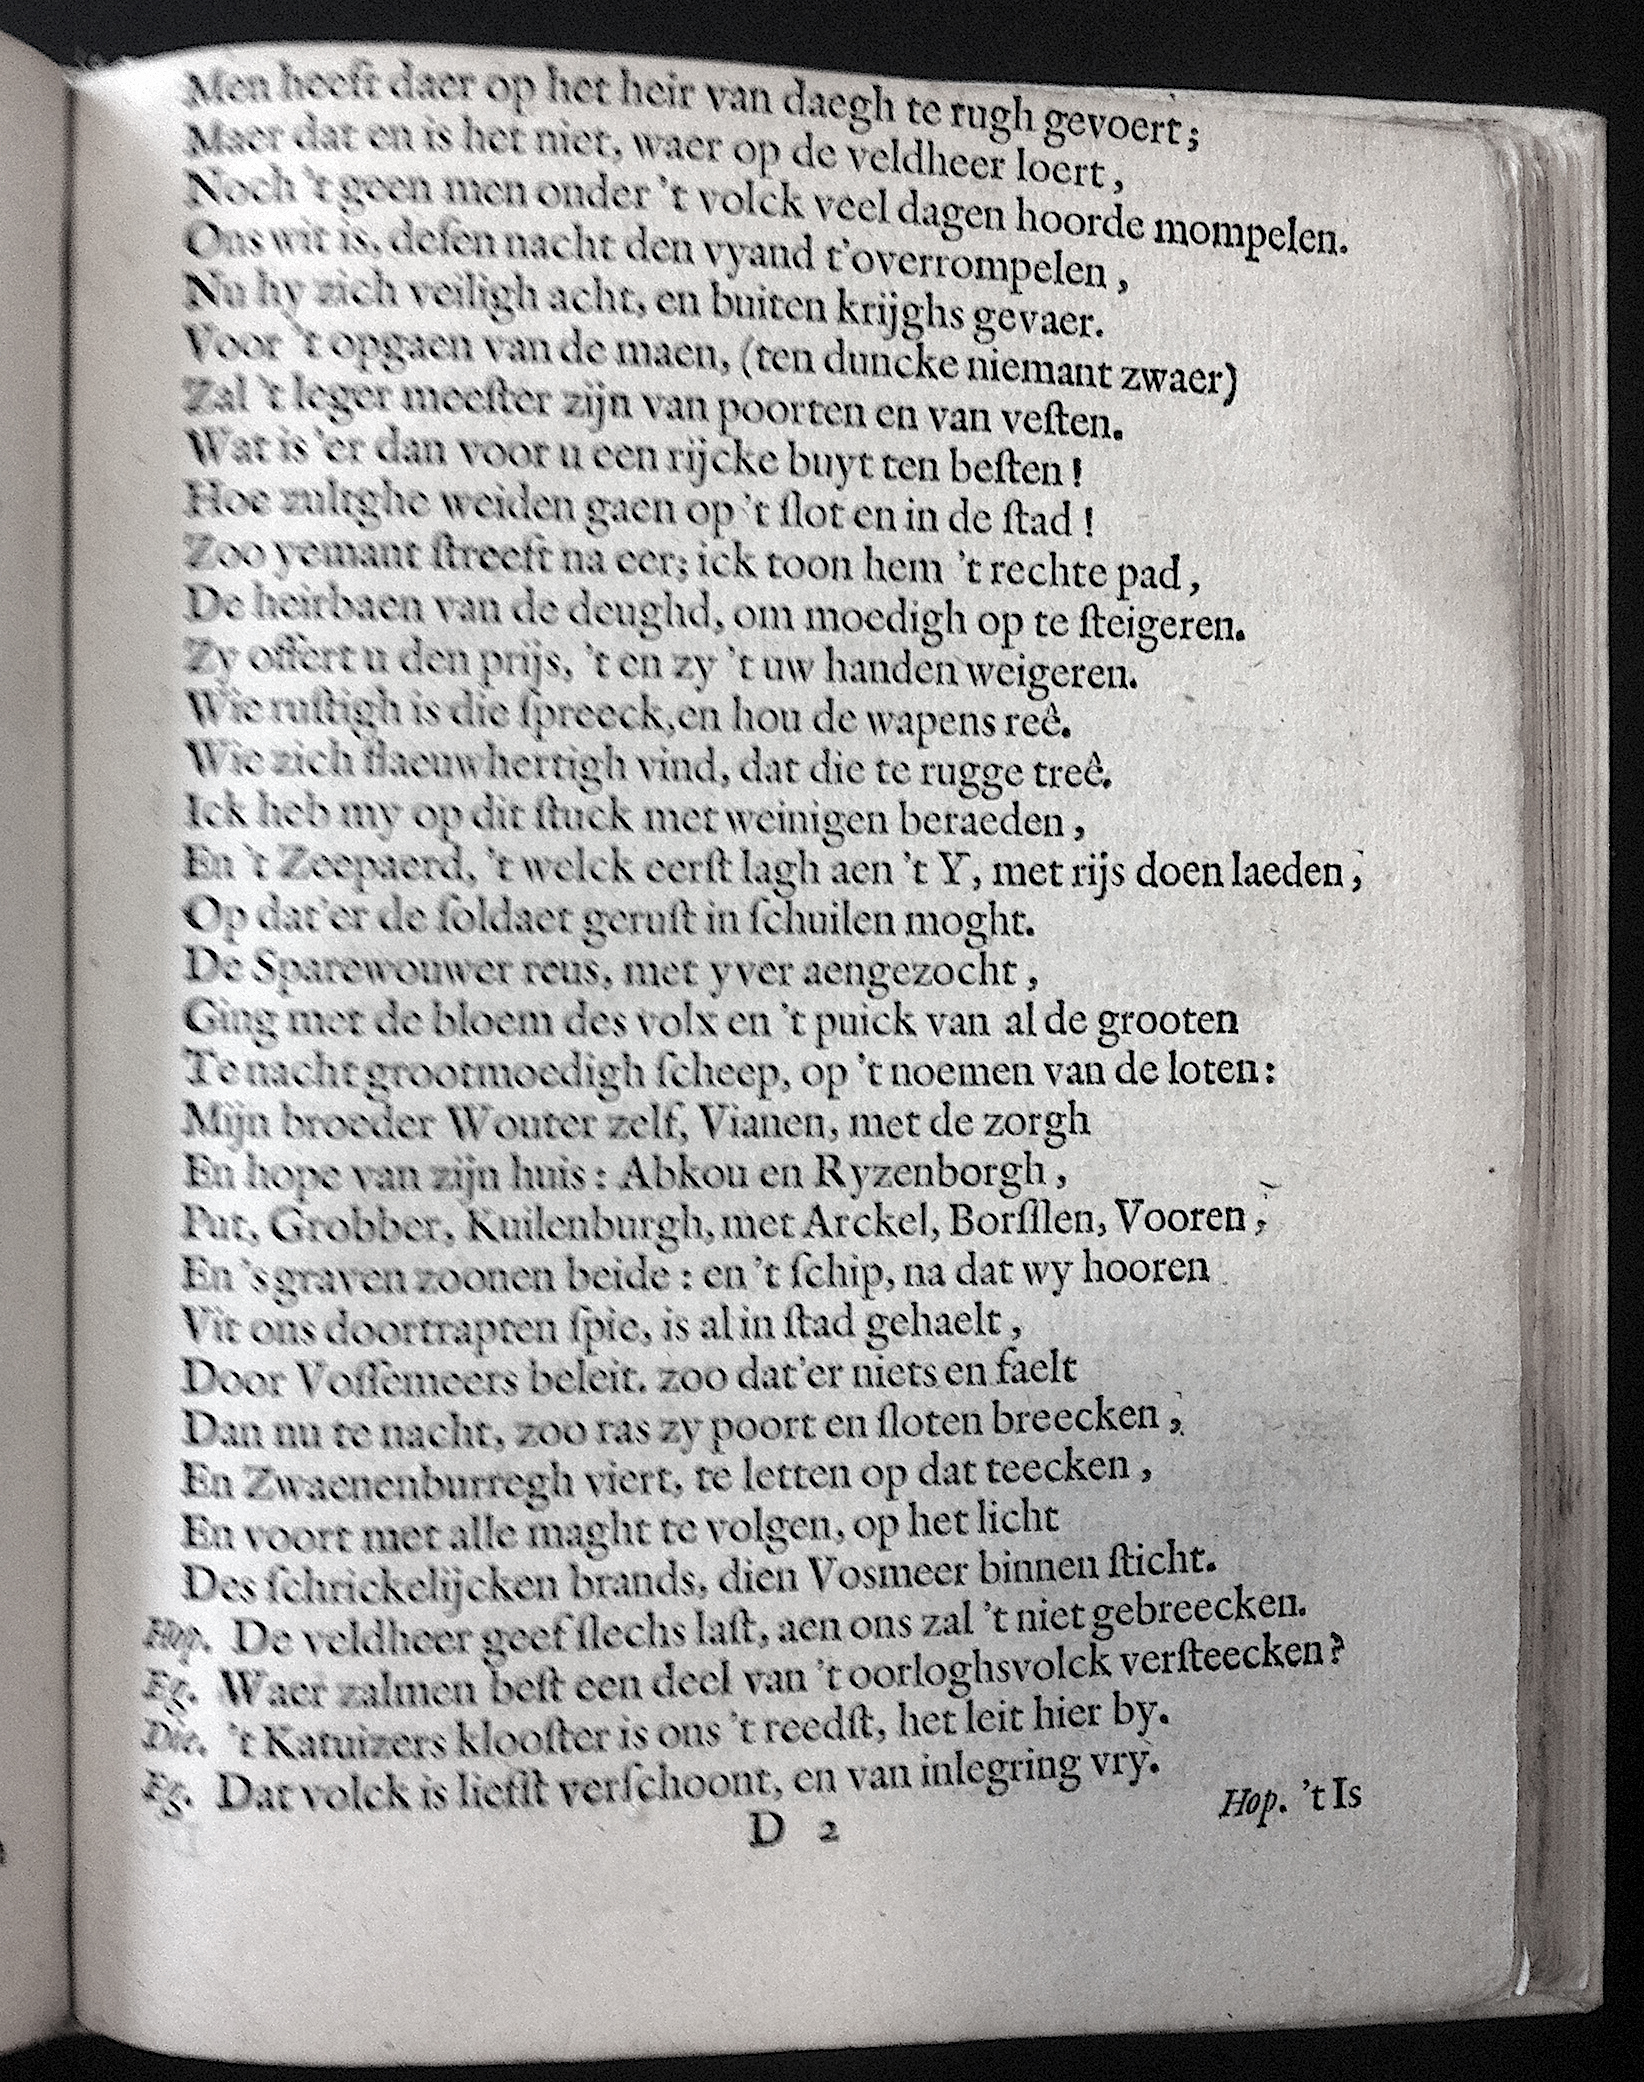 Men heeft daer op het heir van daegh te rugh gevoert;
Maer dat en is het niet, waer op de veldheer loert,
Noch 't geen men onder 't volck veel dagen hoorde mompelen.
Ons wit is, deſen nacht den vyand t'overrompelen,
Nu hy zich veiligh acht, en buiten krijghs gevaer.
Voor 't opgaen van de maen, (ten duncke niemant zwaer)
Zal 't leger meeſter zijn van poorten en van veſten.
Wat is 'er dan voor u een rijcke buyt ten beſten!
Hoe zultghe weiden gaen op 't ſlot en in de ſtad!
Zoo yemant ſtreeft na eer; ick toon hem 't rechte pad,
De heirbaen van de deughd, om moedigh op te ſteigeren.
Zy offert u den prijs, 't en zy 't uw handen weigeren.
Wie ruſtigh is die ſpreeck, en hou de wapens reê.
Wie zich flaeuwhertigh vind, dat die te rugge treê.
Ick heb my op dit ſtuck met weinigen beraeden,
En 't Zeepaerd, 't welck eerſt lagh aen 't Y, met rijs doen laeden,
Op dat'er de ſoldaet geruſt in ſchuilen moght.
De Sparewouwer reus, met yver aengezocht,
Ging met de bloem des volx en 't puick van al de grooten
Te nacht grootmoedigh ſcheep, op 't noemen van de loten:
Mijn broeder Wouter zelf, Vianen, met de zorgh
En hope van zijn huis: Abkou en Ryzenborgh,
Put, Grobber, Kuilenburgh, met Arckel, Borſſlen, Vooren,
En 's graven zoonen beide: en 't ſchip, na dat wy hooren
Vit ons doortrapten ſpie, is al in ſtad gehaelt,
Door Voſſemeers beleit. zoo dat'er niets en faelt
Dan nu te nacht, zoo ras zy poort en ſloten breecken,
En Zwaenenburregh viert, te letten op dat teecken,
En voort met alle maght te volgen, op het licht
Des ſchrickelijcken brands, dien Vosmeer binnen ſticht.
Hop. De veldheer geef ſlechs laſt, aen ons zal 't niet gebreecken.
Eg. Waer zalmen beſt een deel van 't oorloghsvolck verſteecken?
Die. 't Katuizers klooſter is ons 't reedſt, het leit hier by.
Eg. Dat volck is liefſt verſchoont, en van inlegring vry.
D 2 Hop. 't Is